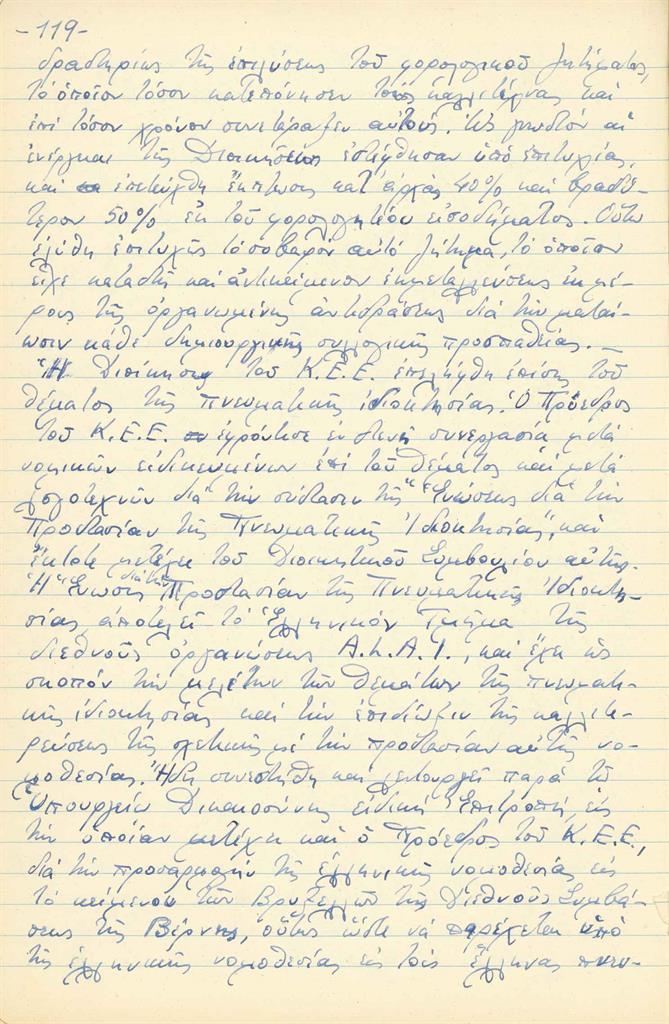 -119-
δραστηρίως τῆς ἐπιλύσεως τοῦ φορολογικοῦ ζητήματος,
τὸ ὁποῖον τόσον κατεπόνησεν τοὺς καλλιτέχνας καὶ
ἐπὶ τόσον χρόνον συνετάραξεν αὐτούς. Ὡς γνωστὸν αἱ
ἐνέργειαι τῆς Διοικήσεως ἐστέφθησαν ὑπὸ ἐπιτυχίας,
καὶ ἐπετεύχθη ἔκπτωσις κατ' ἀρχὰς 40% καὶ βραδύ-
τερον 50% ἐκ τοῦ φορολογητέου εἰσοδήματος. Οὕτω
ἐλύθη ἐπιτυχῶς τὸ σοβαρὸν αὐτὸ ζήτημα, τὸ ὁποῖον
εἶχε καταστῆ καὶ ἀντικείμενον ἐκμεταλλεύσεως ἐκ μέ-
ρους τῆς ὀργανωμένης ἀντιδράσεως διὰ τὴν ματαί-
ωσιν κάθε δημιουργικῆς συλλογικῆς προσπαθείας. _
Ἡ Διοίκησις τοῦ Κ.Ε.Ε. ἐπελήφθη ἐπίσης τοῦ
θέματος τῆς πνευματικῆς ἰδιοκτησίας. Ὁ Πρόεδρος
τοῦ Κ.Ε.Ε. ἐφρόντισε ἐν στενῇ συνεργασίᾳ μετὰ
νομικῶν εἰδικευμένων ἐπὶ τοῦ θέματος καὶ μετὰ
λογοτεχνῶν διὰ τὴν σύστασιν τῆς "Ἑνώσεως διὰ τὴν
Προστασίαν τῆς Πνευματικῆς Ἰδιοκτησίας", καὶ
ἔκτοτε μετέχει τοῦ Διοικητικοῦ Συμβουλίου αὐτῆς.
Ἡ Ἕνωσις διὰ τὴν Προστασίαν τῆς Πνευματικῆς Ἰδιοκτη-
σίας ἀποτελεῖ τὸ Ἑλληνικὸν Τμῆμα τῆς
διεθνοῦς ὀργανώσεως A.L.A.I., καὶ ἔχει ὡς
σκοπὸν τὴν μελέτην τῶν θεμάτων τῆς πνευματι-
κῆς ἰδιοκτησίας καὶ τὴν ἐπιδίωξιν τῆς καλλιτε-
ρεύσεως τῆς σχετικῆς μὲ τὴν προστασίαν αὐτῆς νο-
μοθεσίας. Ἤδη συνεστήθη καὶ λειτουργεῖ παρὰ τῷ
Ὑπουργείῳ Δικαιοσύνης εἰδικὴ Ἐπιτροπή, εἰς
τὴν ὁποίαν μετέχει καὶ ὁ Πρόεδρος τοῦ Κ.Ε.Ε.,
διὰ τὴν προσαρμογὴν τῆς ἑλληνικῆς νομοθεσίας εἰς
τὸ κείμενον τῶν Βρυξελλῶν τῆς Διεθνοῦς Συμβά-
σεως τῆς Βέρνης, οὕτως ὥστε νὰ παρέχεται ὑπὸ
τῆς ἑλληνικῆς νομοθεσίας εἰς τοὺς Ἕλληνας πνευ-